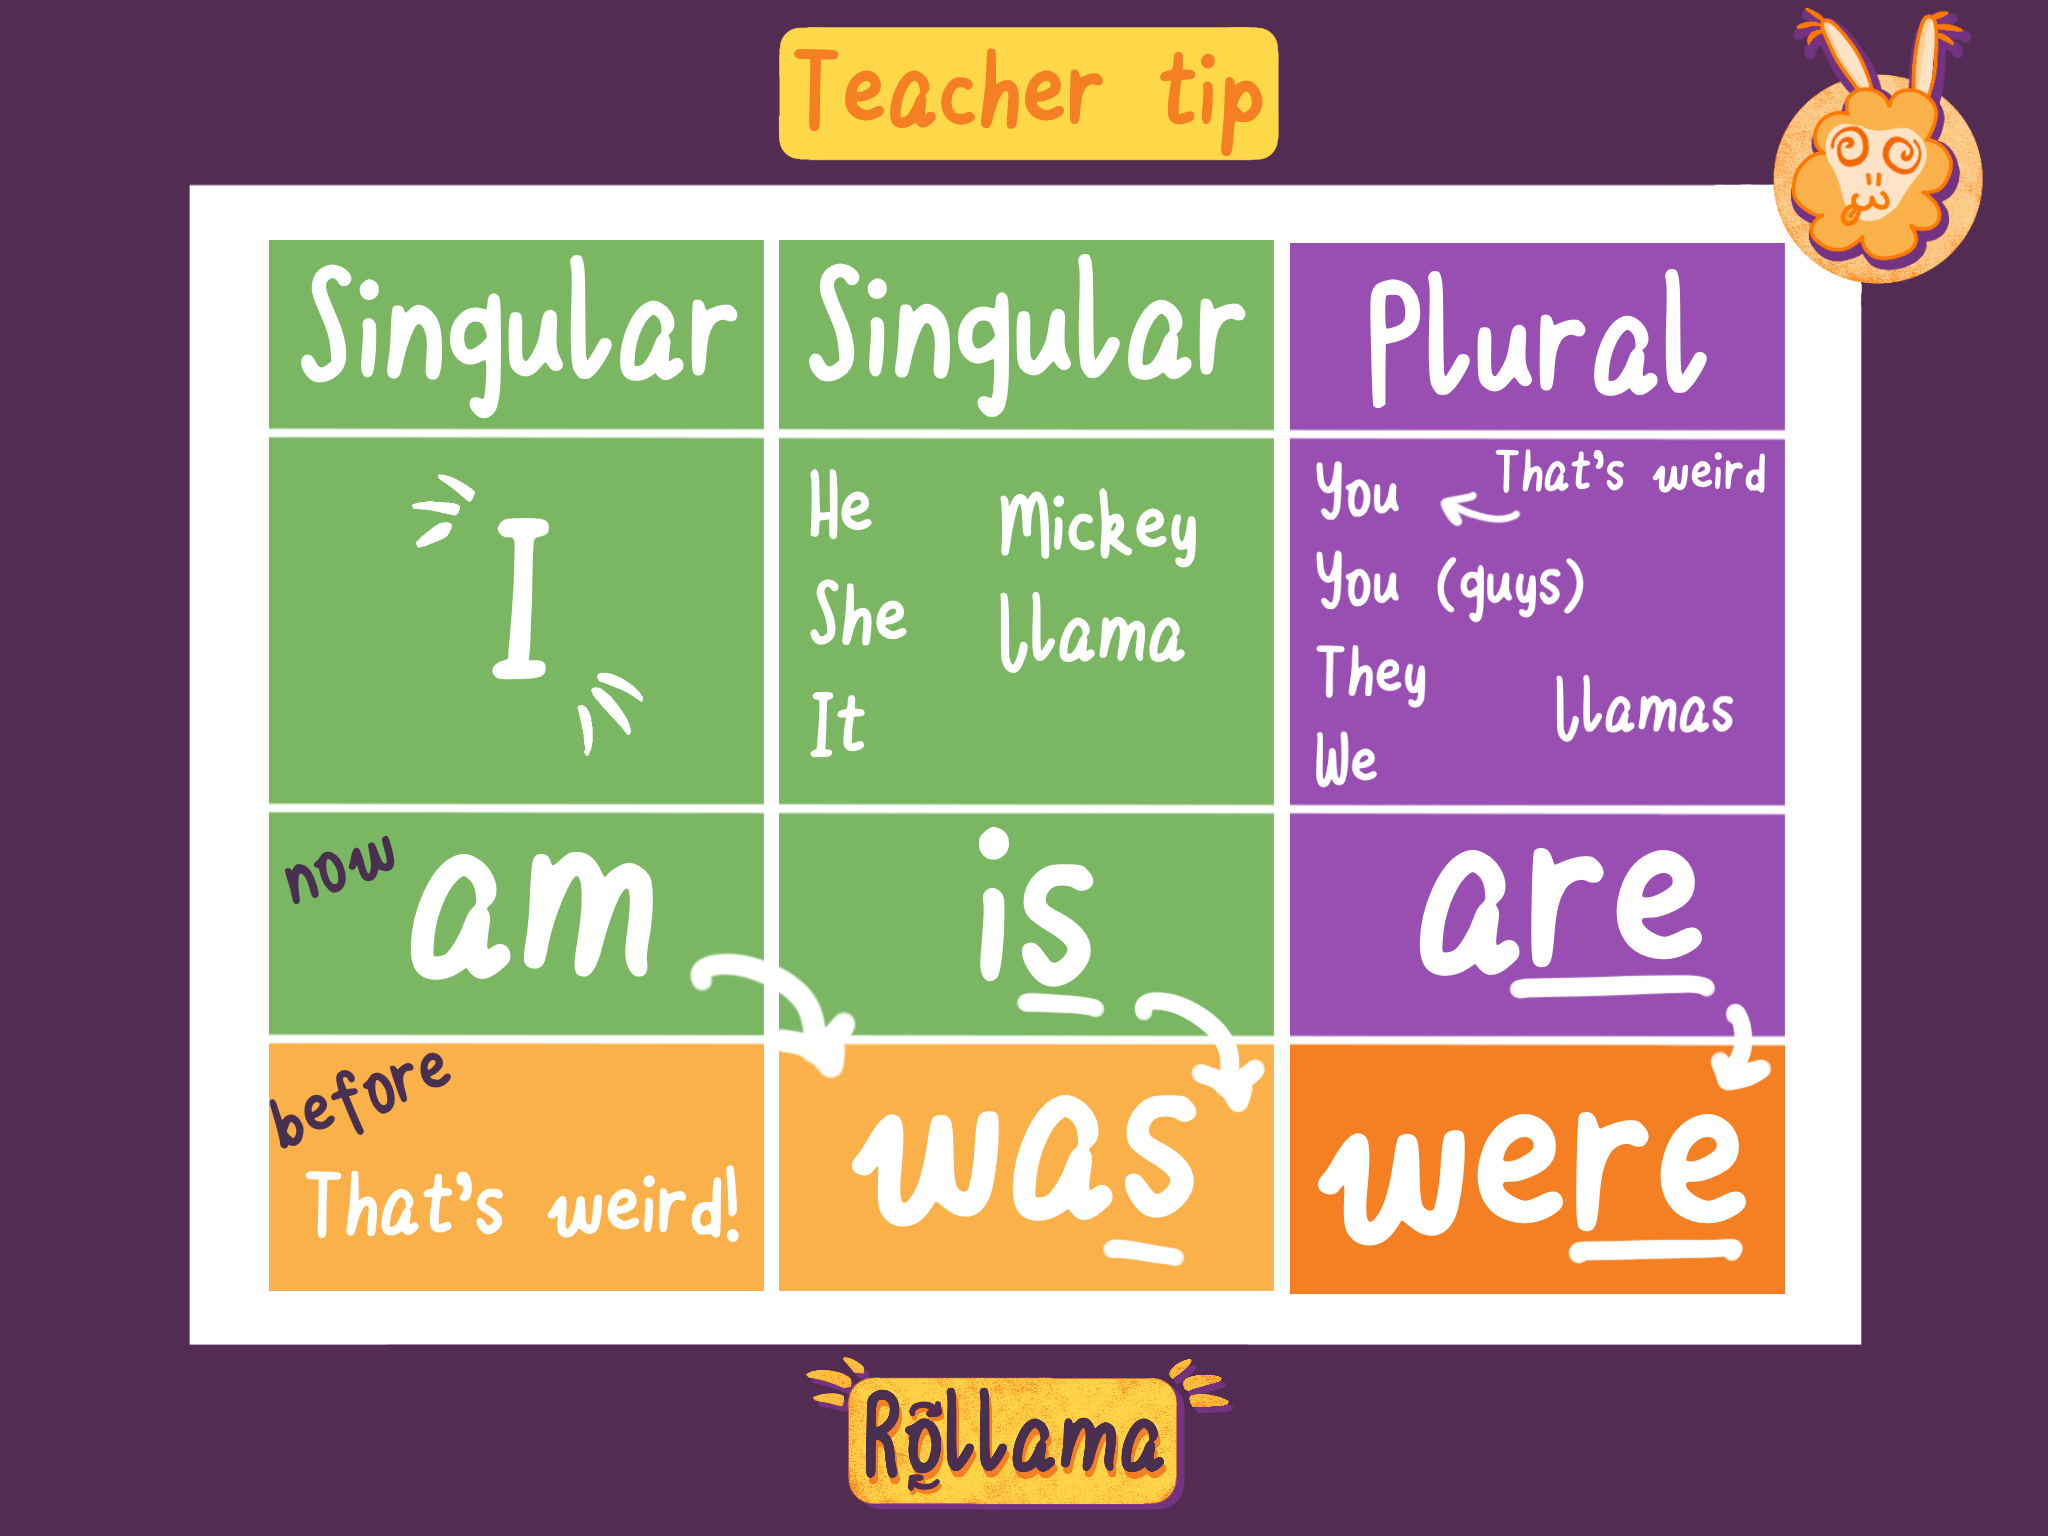 Teacher tip
Singular
Singular
Plural
I
He
Mickey
She
llama
It
You
That's weird
You (guys)
They
llamas
We
now
am
is
are
before
That's weird!
was
were
Rollama